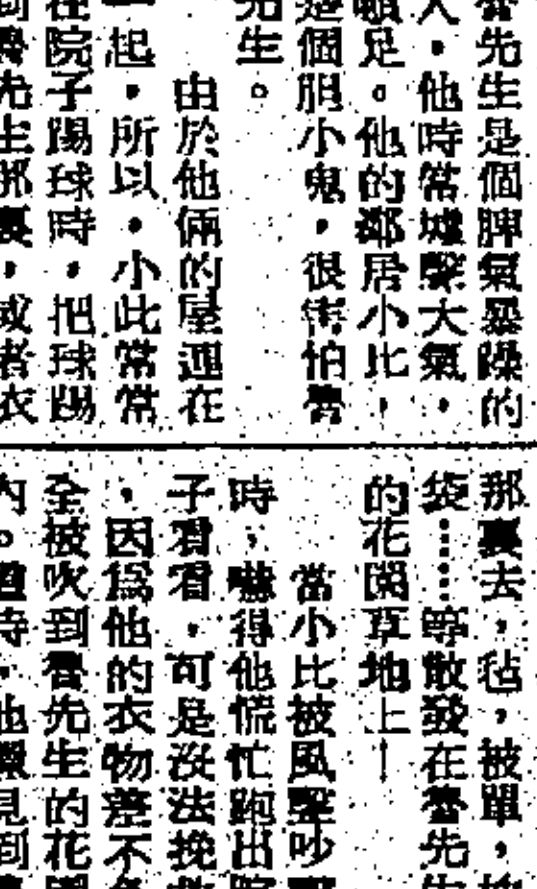 先生是個脾氣暴躁的
人，他時常噓聲大氣，
頓足。他的鄰居小比，
是個胆小鬼，很害怕
先生。
由於他倆的屋連在
一起，所以，小此常常
在院子踢球時，把球踢
到先生那裏，或者衣
那裏去，毡，被單，
袋……等散發在先
的花園草地上！
當小比被風聲吵
時，嚇得他慌忙跑出院
子看看，可是沒法挽救
，因爲他的衣物差不
全被吹到先生的花園
內。時，他見到